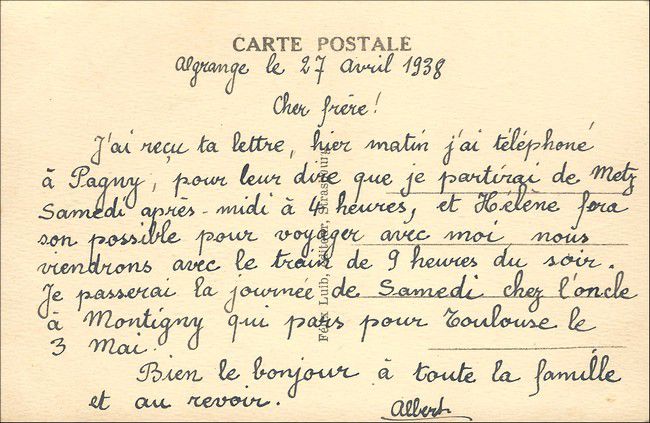 CARTE POSTALE
Algrange le 27 avril 1938
Cher frère!
J'ai reçu ta lettre, hier matin j'ai téléphoné
à Pagny, pour leur dire que je partirai de Metz
Samedi après-midi à 4 heures, et Hélène fera
son possible pour voyager avec moi nous
viendrons avec le train de 9 heures du soir.
Je passerai la journée de Samedi chez l'oncle
à Montigny qui pars pour Toulouse le
3 Mai.
Bien le bonjour à toute la famille
et au revoir.
Albert
Félix Luib, Editeur, Strasbourg